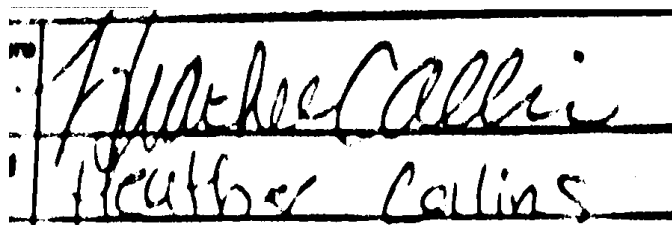 Heather Collins
Heather Collins